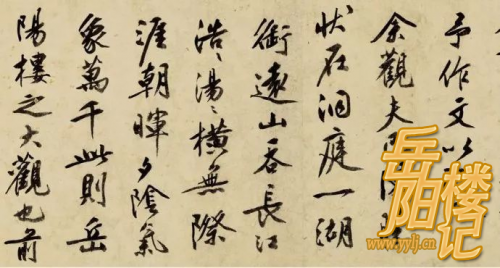 予作文以
余觀夫
状在洞庭一湖
銜遠山吞長江
浩々湯々橫無際
涯朝暉夕陰氣
象萬千此則岳
陽樓之大觀也前
岳阳楼记
www.yylj.cn